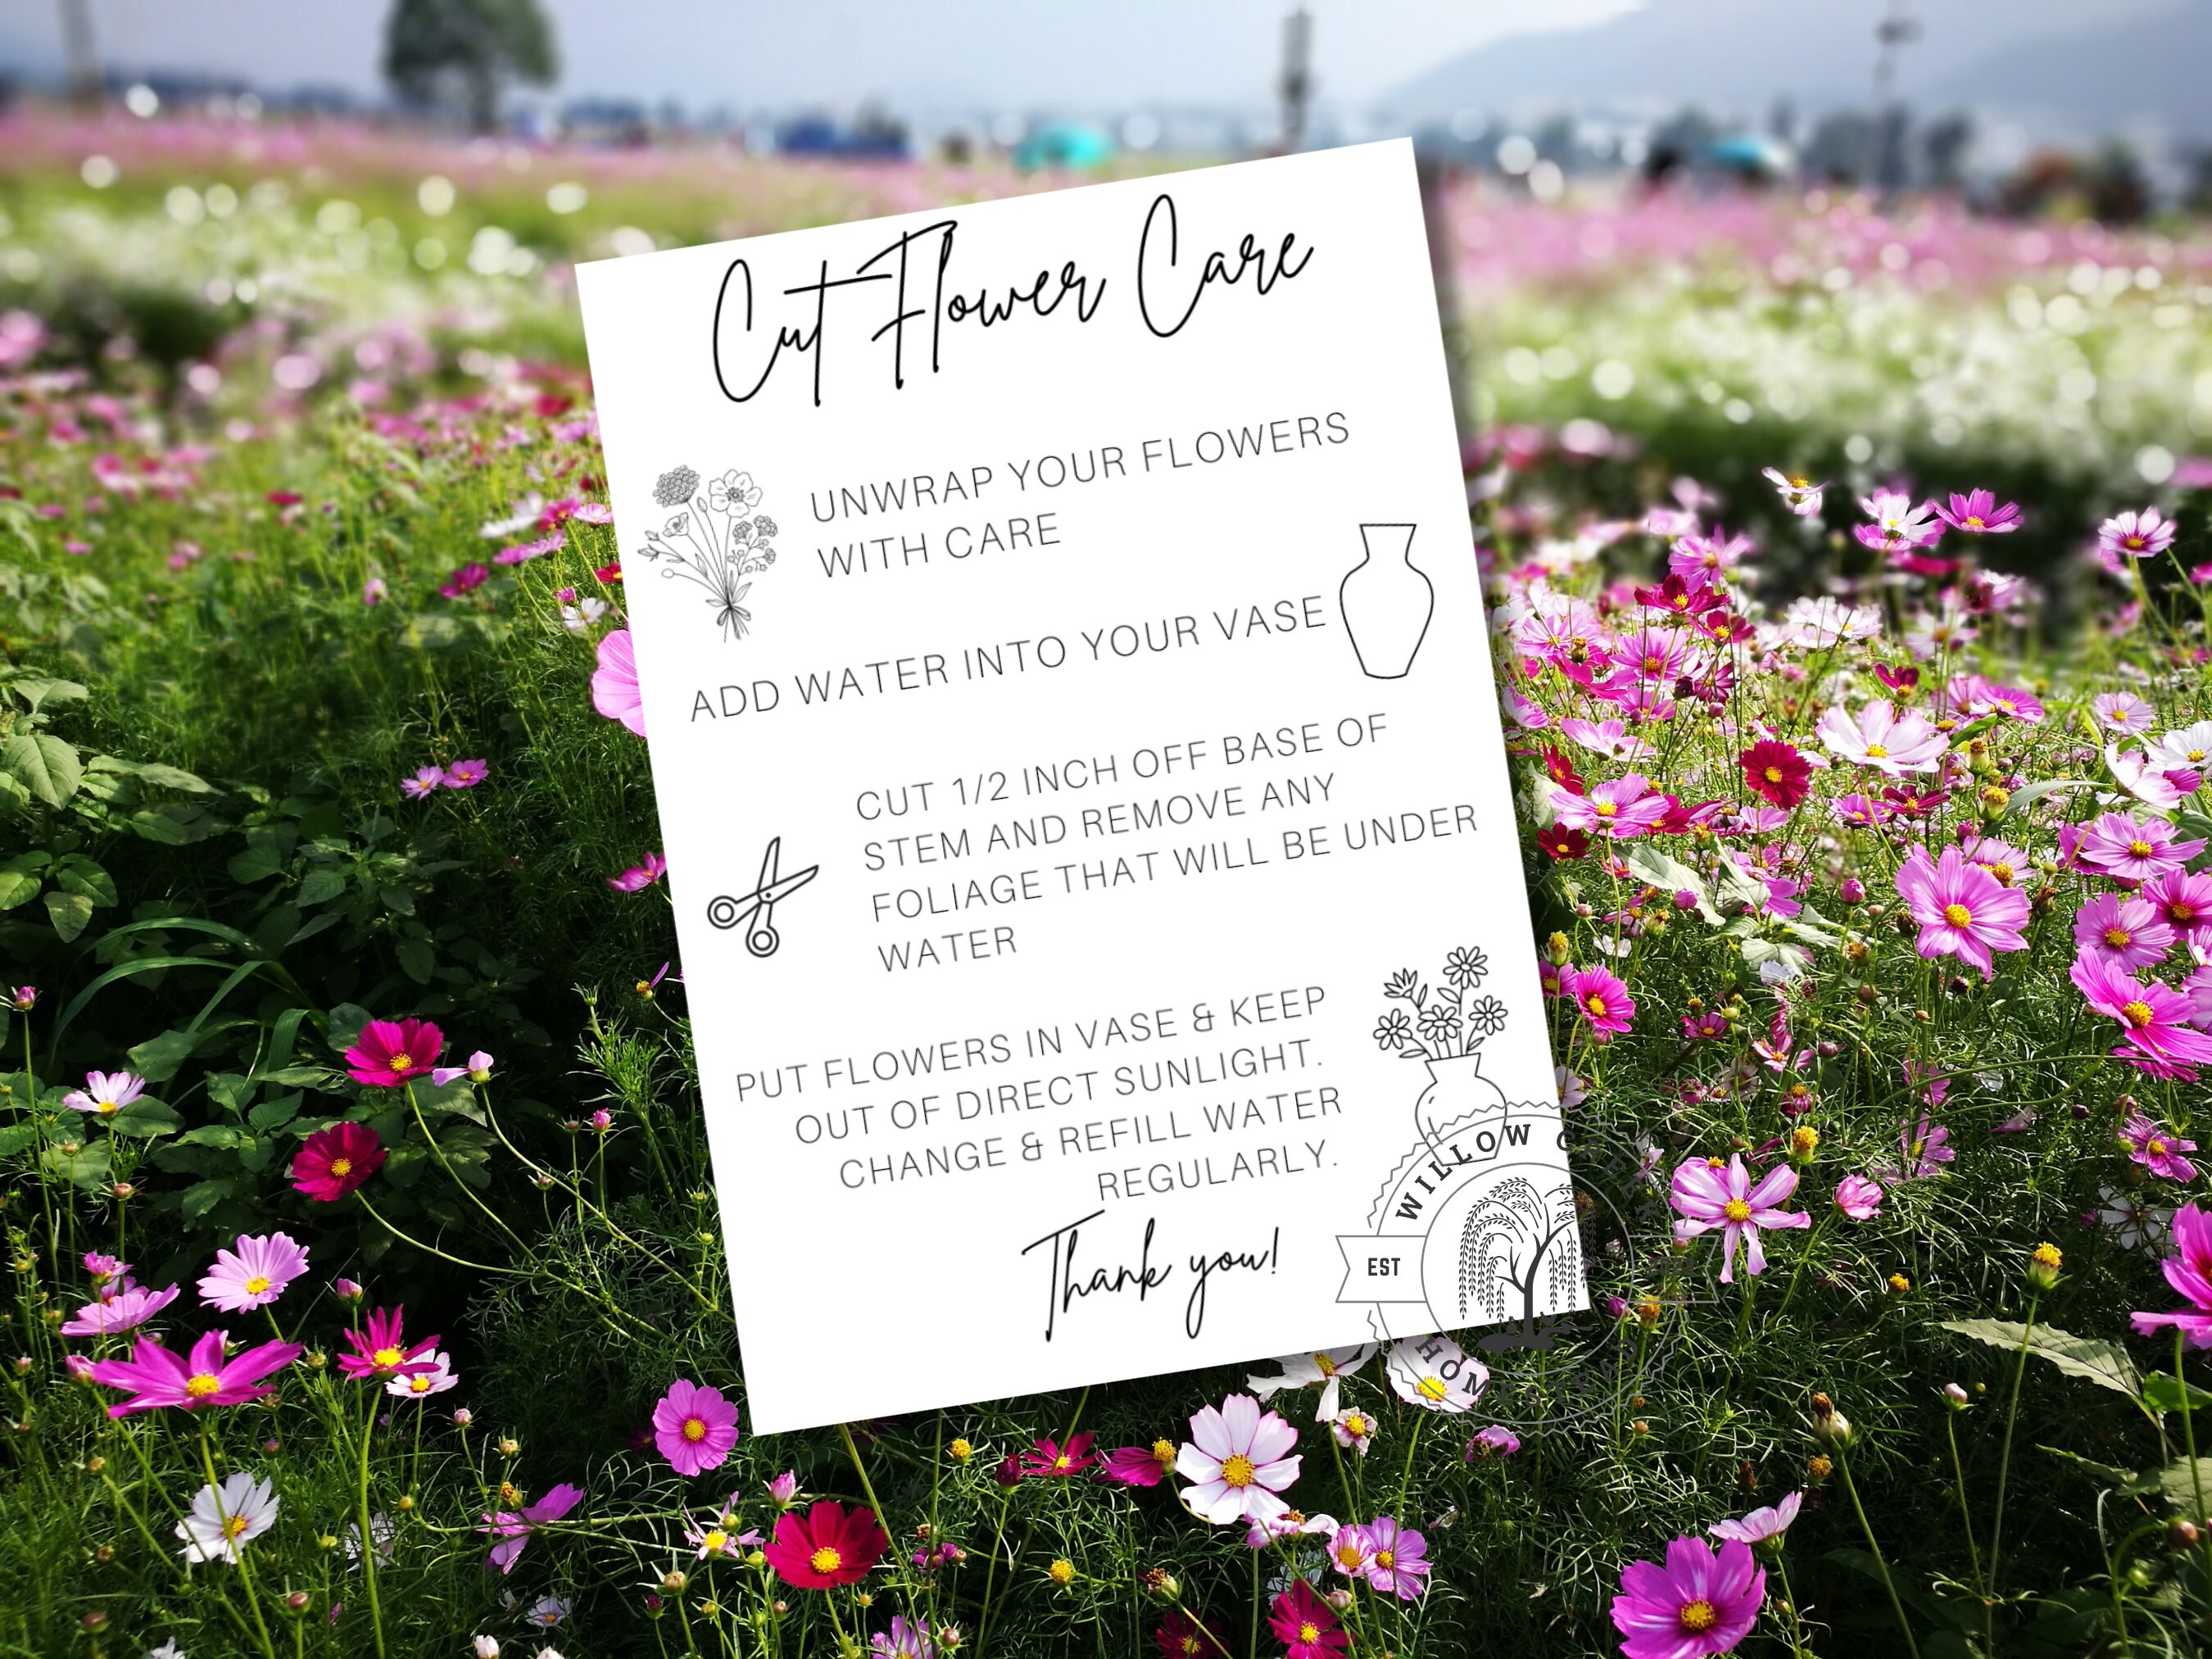 Cut Flower Care
UNWRAP YOUR FLOWERS
WITH CARE
ADD WATER INTO YOUR VASE
CUT 1/2 INCH OFF BASE OF
STEM AND REMOVE ANY
FOLIAGE THAT WILL BE UNDER
WATER
PUT FLOWERS IN VASE & KEEP
OUT OF DIRECT SUNLIGHT.
CHANGE & REFILL WATER
REGULARLY.
Thank you!
WILLOW CREEK
EST
HOMESTEAD